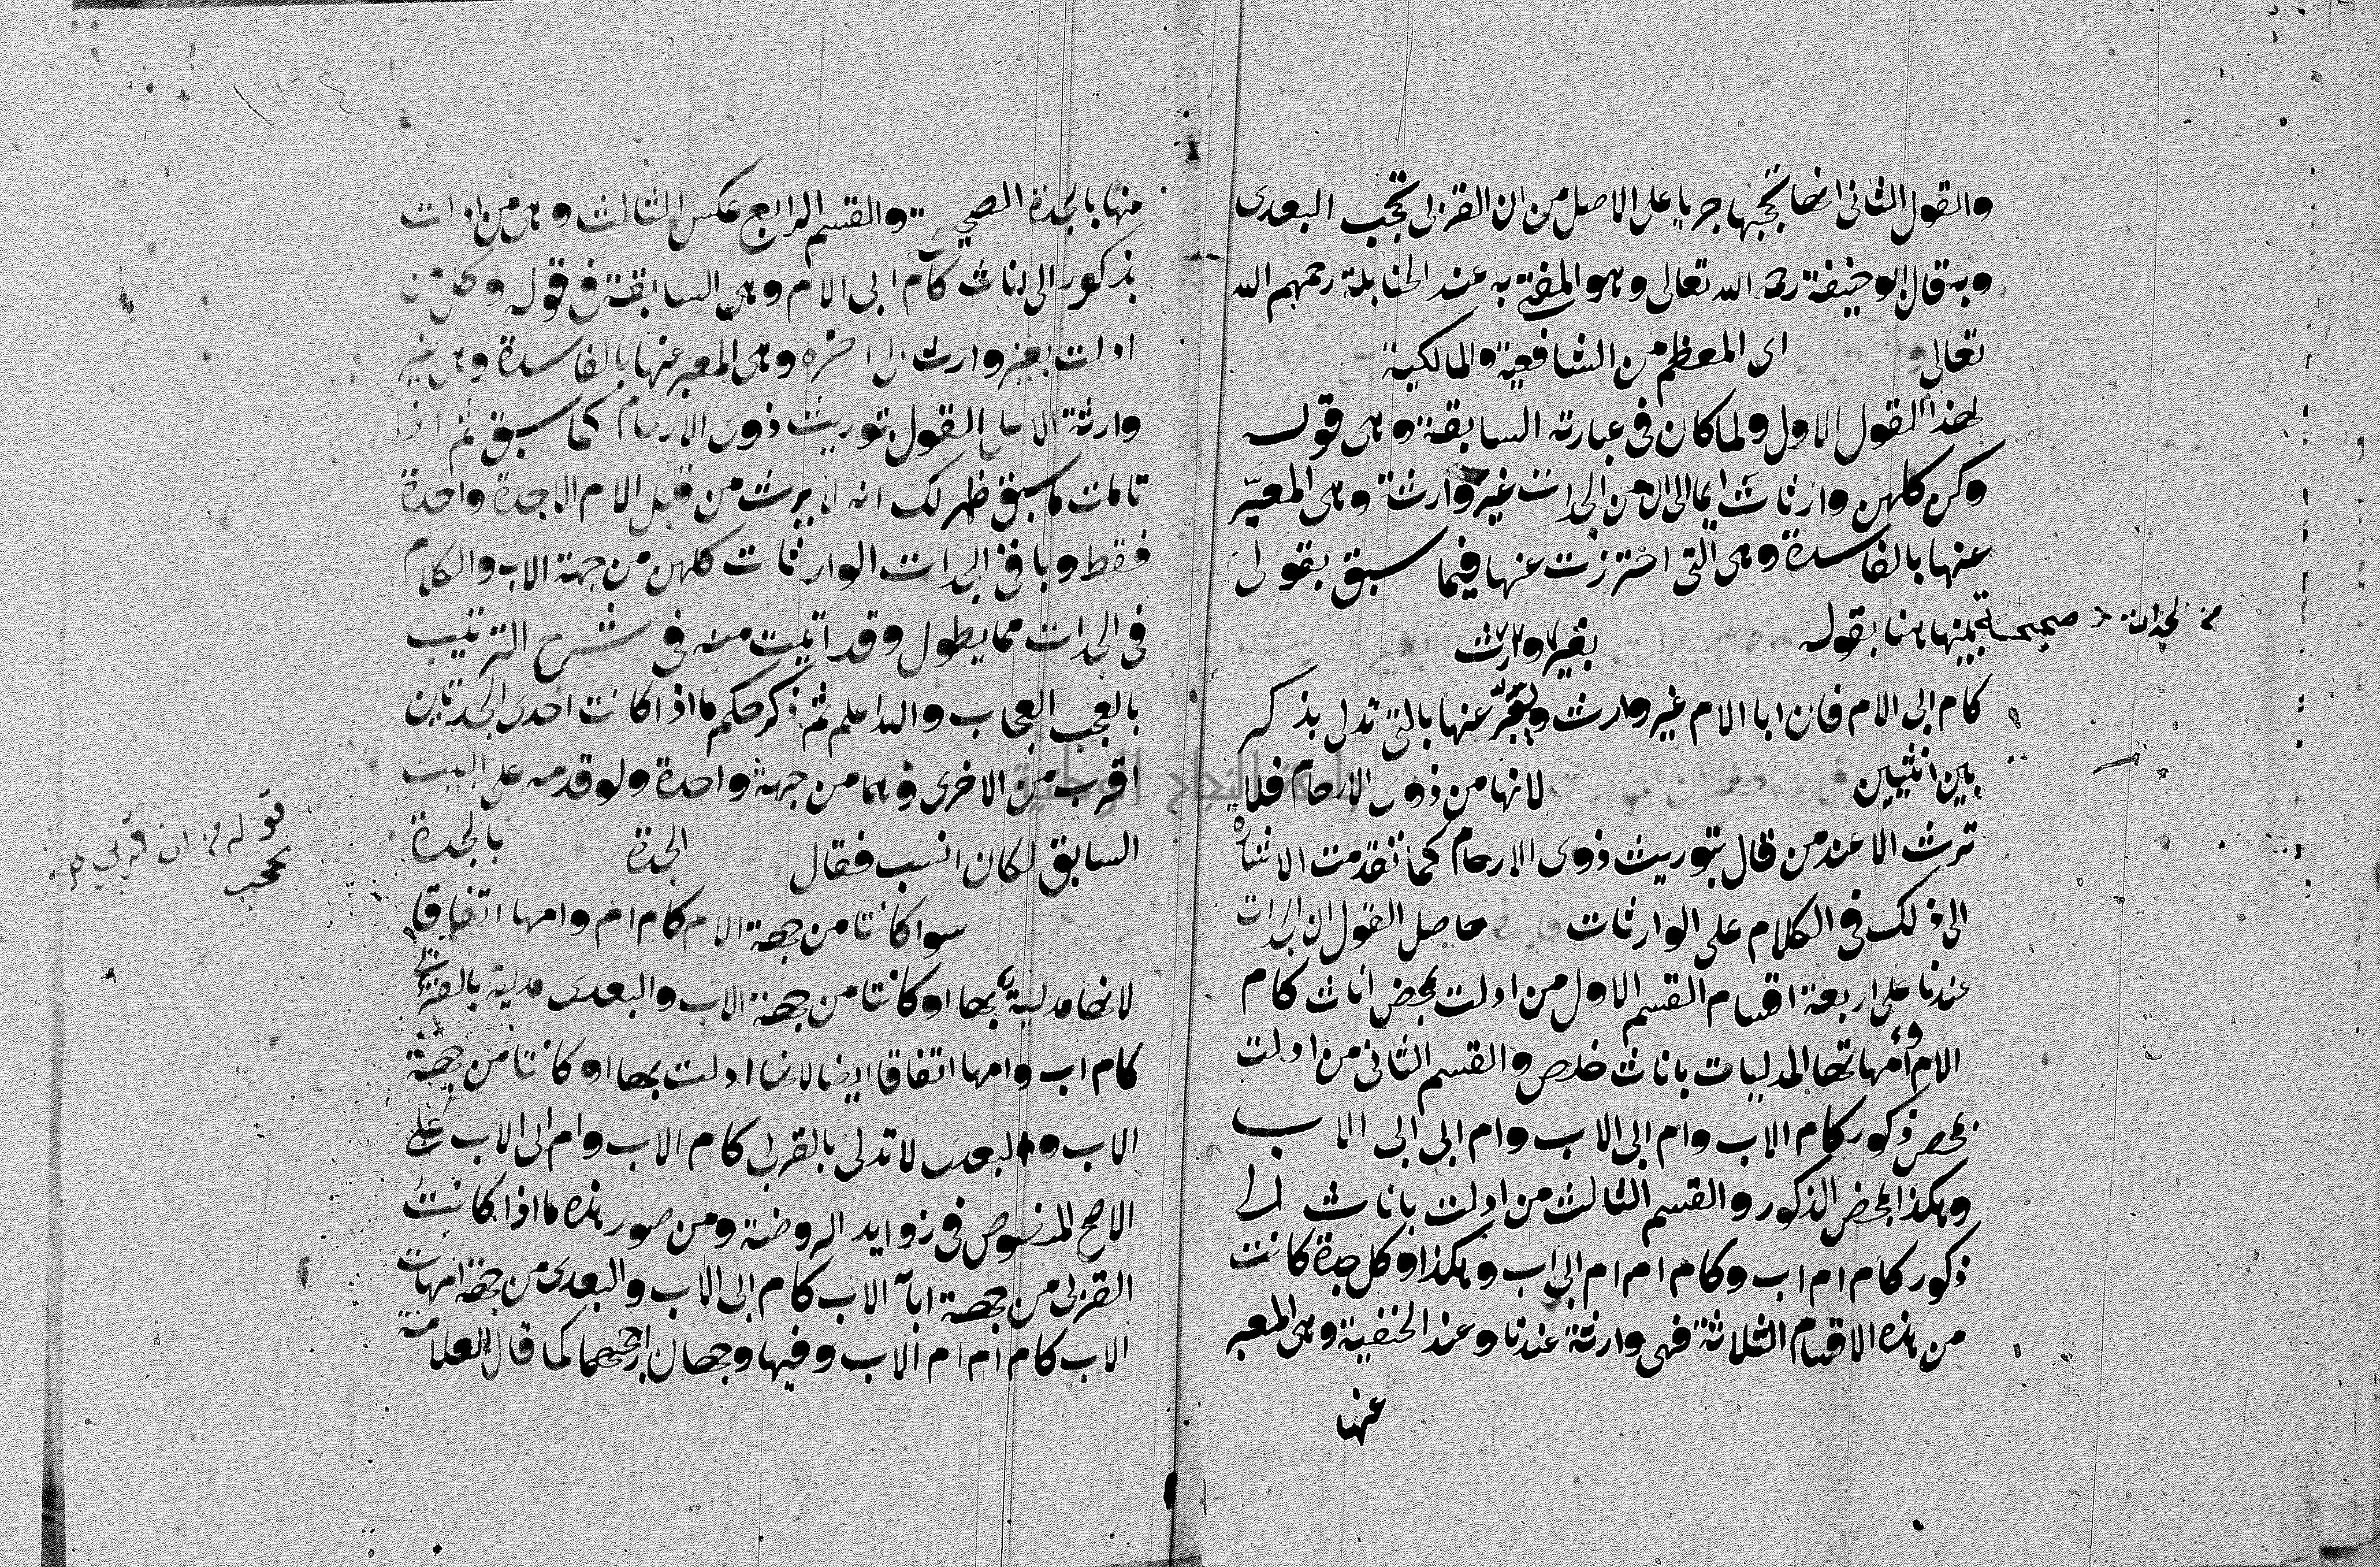 والقول الثانى انها تحجبها جريا على الاصل من ان القربى تحجب البعدى
وبه قال ابو حنيفة رحمه الله تعالى وهو المفتى به عند الحنابلة رحمهم الله
تعالى اى المعظم من الشافعية والمالكية
لهذا القول الاول ولما كان فى عبارته السابقة وهى قوله
وكن كلهن وارثات ايما الى ان من الجدات غير وارثة وهى المعبّر
عنها بالفاسدة وهى التى احترزت عنها فيما سبق بقولى
من الجدات صحيحة بينها هنا بقوله بغير وارث
كام ابى الام فان ابا الام غير وارث ويعبّر عنها بالتى تدلى بذكر
بين انثيين لانها من ذوى الارحام فلا
ترث الا عند من قال بتوريث ذوى الارحام كما تقدمت الاشارة
الى ذلك فى الكلام على الوارثات حاصل القول ان الجدات
عندنا على اربعة اقسام القسم الاول من ادلت بمحض اناث كام
الام وامهاتها المدليات باناث خلص والقسم الثانى من ادلت
بمحض ذكور كام الاب وام ابى الاب وام ابى ابى الاب
وهكذا بمحض الذكور والقسم الثالث من ادلت باناث الى
ذكور كام ام اب وكام ام ام ابى اب وهكذا وكل جدة كانت
من هذه الاقسام الثلاثة فهى وارثة عندنا وعند الحنفية وهى المعبر
عنها
منها بالجدة الصحيحة والقسم الرابع عكس الثالث وهى من ادلت
بذكور الى اناث كام ابى الام وهى السابقة فى قوله وكل من
ادلت بغير وارث الى اخره وهى المعبر عنها بالفاسدة وهى غير
وارثة الا على القول بتوريث ذوى الارحام كما سبق ثم اذا
تاملت ما سبق ظهر لك انه لا يرث من قبل الام الا جدة واحدة
فقط وباقى الجدات الوارثات كلهن من جهة الاب والكلام
فى الجدات مما يطول وقد اتيت منه فى شرح الترتيب
بالعجب العجاب والله اعلم ثم ذكر حكم ما اذا كانت احدى الجدتين
اقرب من الاخرى وهما من جهة واحدة ولو قدمه على البيت
السابق لكان انسب فقال الجدة بالجدة
سوا كانتا من جهة الام كام ام وامها اتفاقا
لانها مدلية بها او كانتا من جهة الاب والبعدى مدلية بالقربى
كام اب وامها اتفاقا ايضا لانها ادلت بها او كانتا من جهة
الاب والبعدى لا تدلى بالقربى كام الاب وام ابى الاب على
الاصح المنصوص فى زوايد الروضة ومن صور هذه ما اذا كانت
القربى من جهة ابآ الاب كام ابى الاب والبعدى من جهة امهات
الاب كام ام ام الاب وفيها وجهان ارجحهما كما قال العلامة
قوله من ان قربى
تحجب